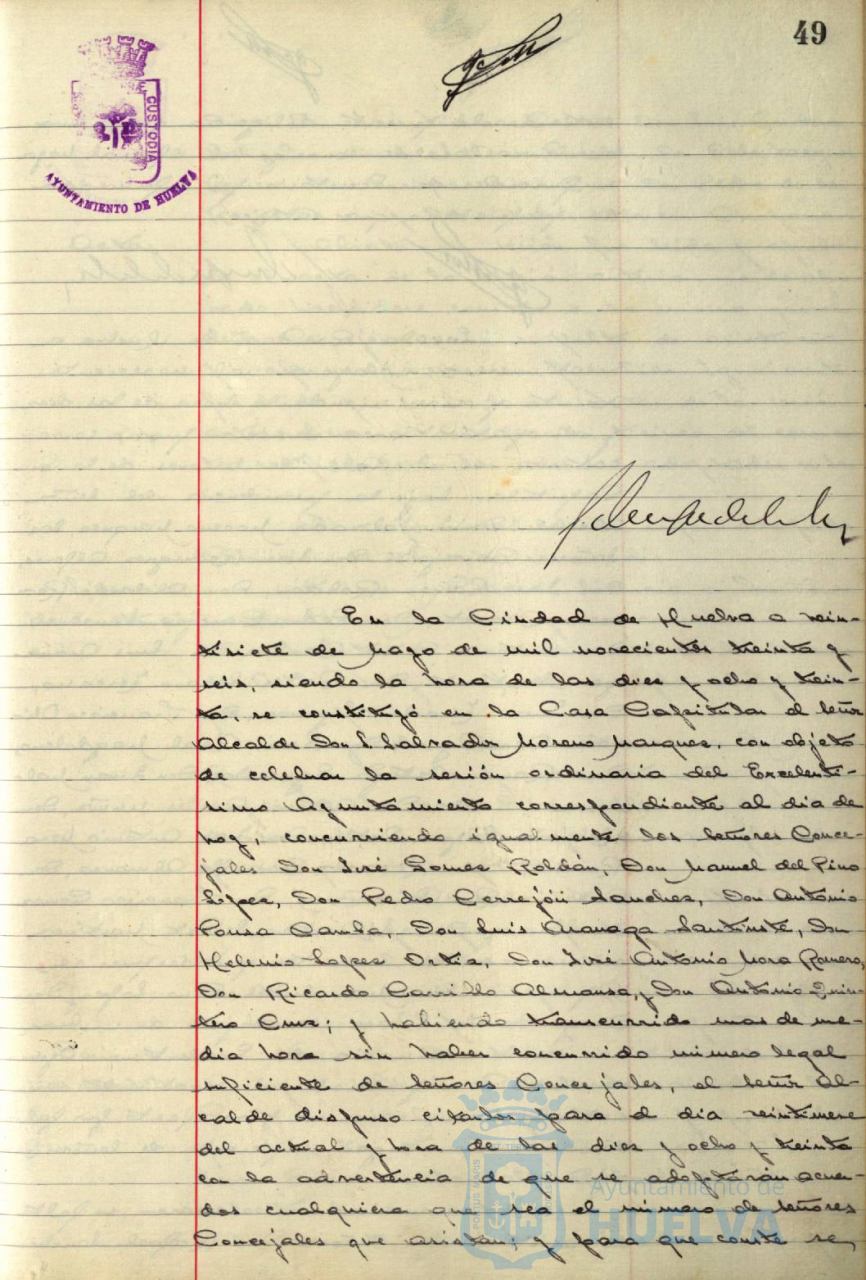 49
CUSTODIA
AYUNTAMIENTO DE HUELVA
En la Ciudad de Huelva a vein-
tisiete de Mayo de mil novecientos treinta y
seis, siendo la hora de las diez y ocho y trein-
ta, se constituyó en la Casa Capitular el señor
Alcalde Don Salvador Moreno Marquez, con objeto
de celebrar la sesión ordinaria del Excelentí-
simo Ayuntamiento correspondiente al dia de
hoy, concurriendo igualmente los señores Conce-
jales Don José Gomez Roldán, Don Manuel del Pino
López, Don Pedro Cerrejón Sanchez, Don Antonio
Pousa Camba, Don Luis Aranaga Santiuste, Don
Helenio Lopez Ortiz, Don José Antonio Mora Romero,
Don Ricardo Carrillo Almansa, y Don Antonio Quin-
tero Cruz; y habiendo transcurrido mas de me-
dia hora sin haber concurrido número legal
suficiente de señores Concejales, el señor Al-
calde dispuso citarlos para el dia veintinueve
del actual y hora de las diez y ocho y treinta
con la advertencia de que se adoptarán acuer-
dos cualquiera que sea el número de señores
Concejales que asistan; y para que conste se,
Ayuntamiento de
HUELVA